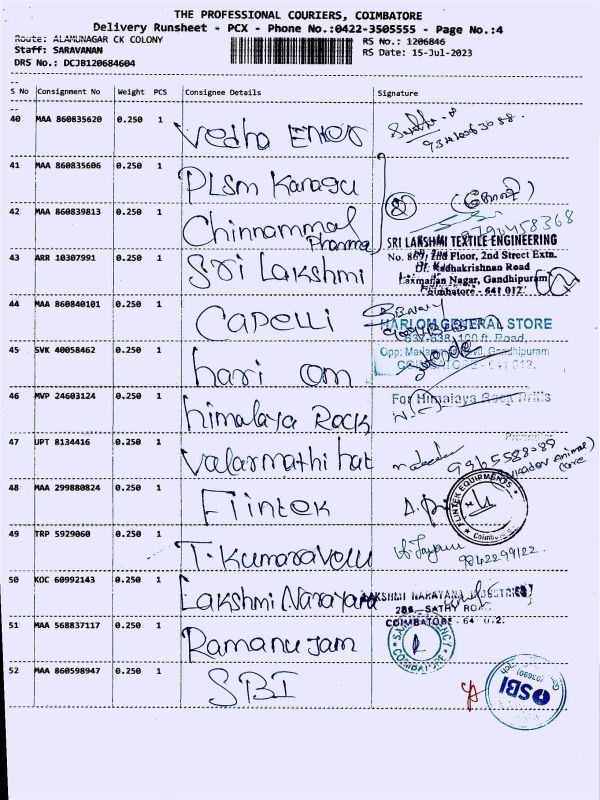 THE PROFESSIONAL COURIERS, COIMBATORE
Delivery Runsheet - PCX - Phone No.:0422-3505555 - Page No.:4
Route: ALAMUNAGAR CK COLONY
RS No.: 1206846
Staff: SARAVANAN
RS Date: 15-Jul-2023
DRS No.: DCJB120684604
S No Consignment No Weight PCS Consignee Details Signature
40 MAA 860835620 0.250 1 Vedha Enter
41 MAA 860835606 0.250 1 PLSM Kanagu
42 MAA 860839813 0.250 1 Chinnammal Pharma
SRI LAKSHMI TEXTILE ENGINEERING
43 ARR 10307991 0.250 1 Sri Lakshmi
No. 869, 2nd Floor, 2nd Street Extn.
Dr. Radhakrishnan Road
Laxmanan Nagar, Gandhipuram
Coimbatore - 641 012.
44 MAA 860840101 0.250 1 Capelli
HARI OM GENERAL STORE
637-638, 100 ft. Road,
45 SVK 40058462 0.250 1 hari om
Gandhipuram
COIMBATORE - 641 012.
46 MVP 24603124 0.250 1 himalaya Rock
For Himalaya Rock
47 UPT 8134416 0.250 1 Valarmathi hat
9365588089
48 MAA 299880824 0.250 1 Flintek
FLINTEK EQUIPMENTS
Coimbatore
49 TRP 5929060 0.250 1 T. Kumaravelu
9842299122.
50 KOC 60992143 0.250 1 Lakshmi Narayana
LAKSHMI NARAYANA INDUSTRIES
286, SATHY ROAD
COIMBATORE - 641 012.
51 MAA 568837117 0.250 1 Ramanujam
COIMBATORE
52 MAA 860598947 0.250 1 SBI
SBI